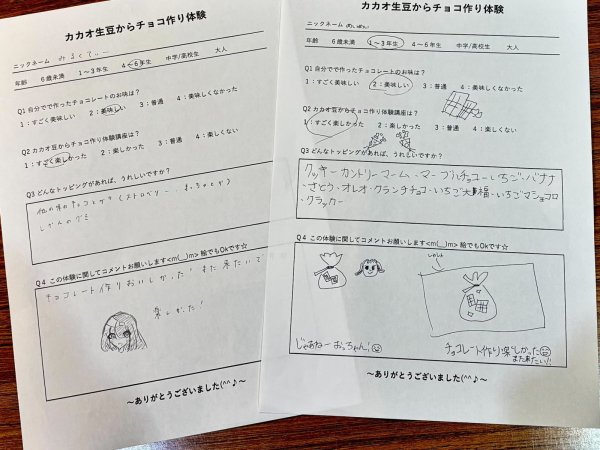 カカオ生豆からチョコ作り体験
ニックネーム みるくてぃー
年齢 6歳未満 1〜3年生 4〜6年生 中学/高校生 大人
Q1 自分でで作ったチョコレートのお味は?
1:すごく美味しい 2:美味しい 3:普通 4:美味しくなかった
Q2 カカオ豆からチョコ作り体験講座は?
1:すごく楽しかった 2:楽しかった 3:普通 4:楽しくない
Q3 どんなトッピングがあれば、うれしいですか?
他の味のチョコとか(ストロベリー
みかんのグミ
Q4 この体験に関してコメントお願いします<m(__)m> 絵でもOkです☆
チョコレート作りおいしかった!また来たいで
楽しかった!
〜ありがとうございました(^^♪〜
カカオ生豆からチョコ作り体験
ニックネーム
年齢 6歳未満 1〜3年生 4〜6年生 中学/高校生 大人
Q1 自分でで作ったチョコレートのお味は?
1:すごく美味しい 2:美味しい 3:普通 4:美味しくなかった
Q2 カカオ豆からチョコ作り体験講座は?
1:すごく楽しかった 2:楽しかった 3:普通 4:楽しくない
Q3 どんなトッピングがあれば、うれしいですか?
クッキー・カントリーマーム・マーブルチョコ・いちご・バナナ
・さとう・オレオ・クランチチョコ・いちご大福・いちごマショコロ
・クラッカー
Q4 この体験に関してコメントお願いします<m(__)m> 絵でもOkです☆
じゃあねーおっちゃん!
チョコレート作り楽しかった
また来たい!!
〜ありがとうございました(^^♪〜